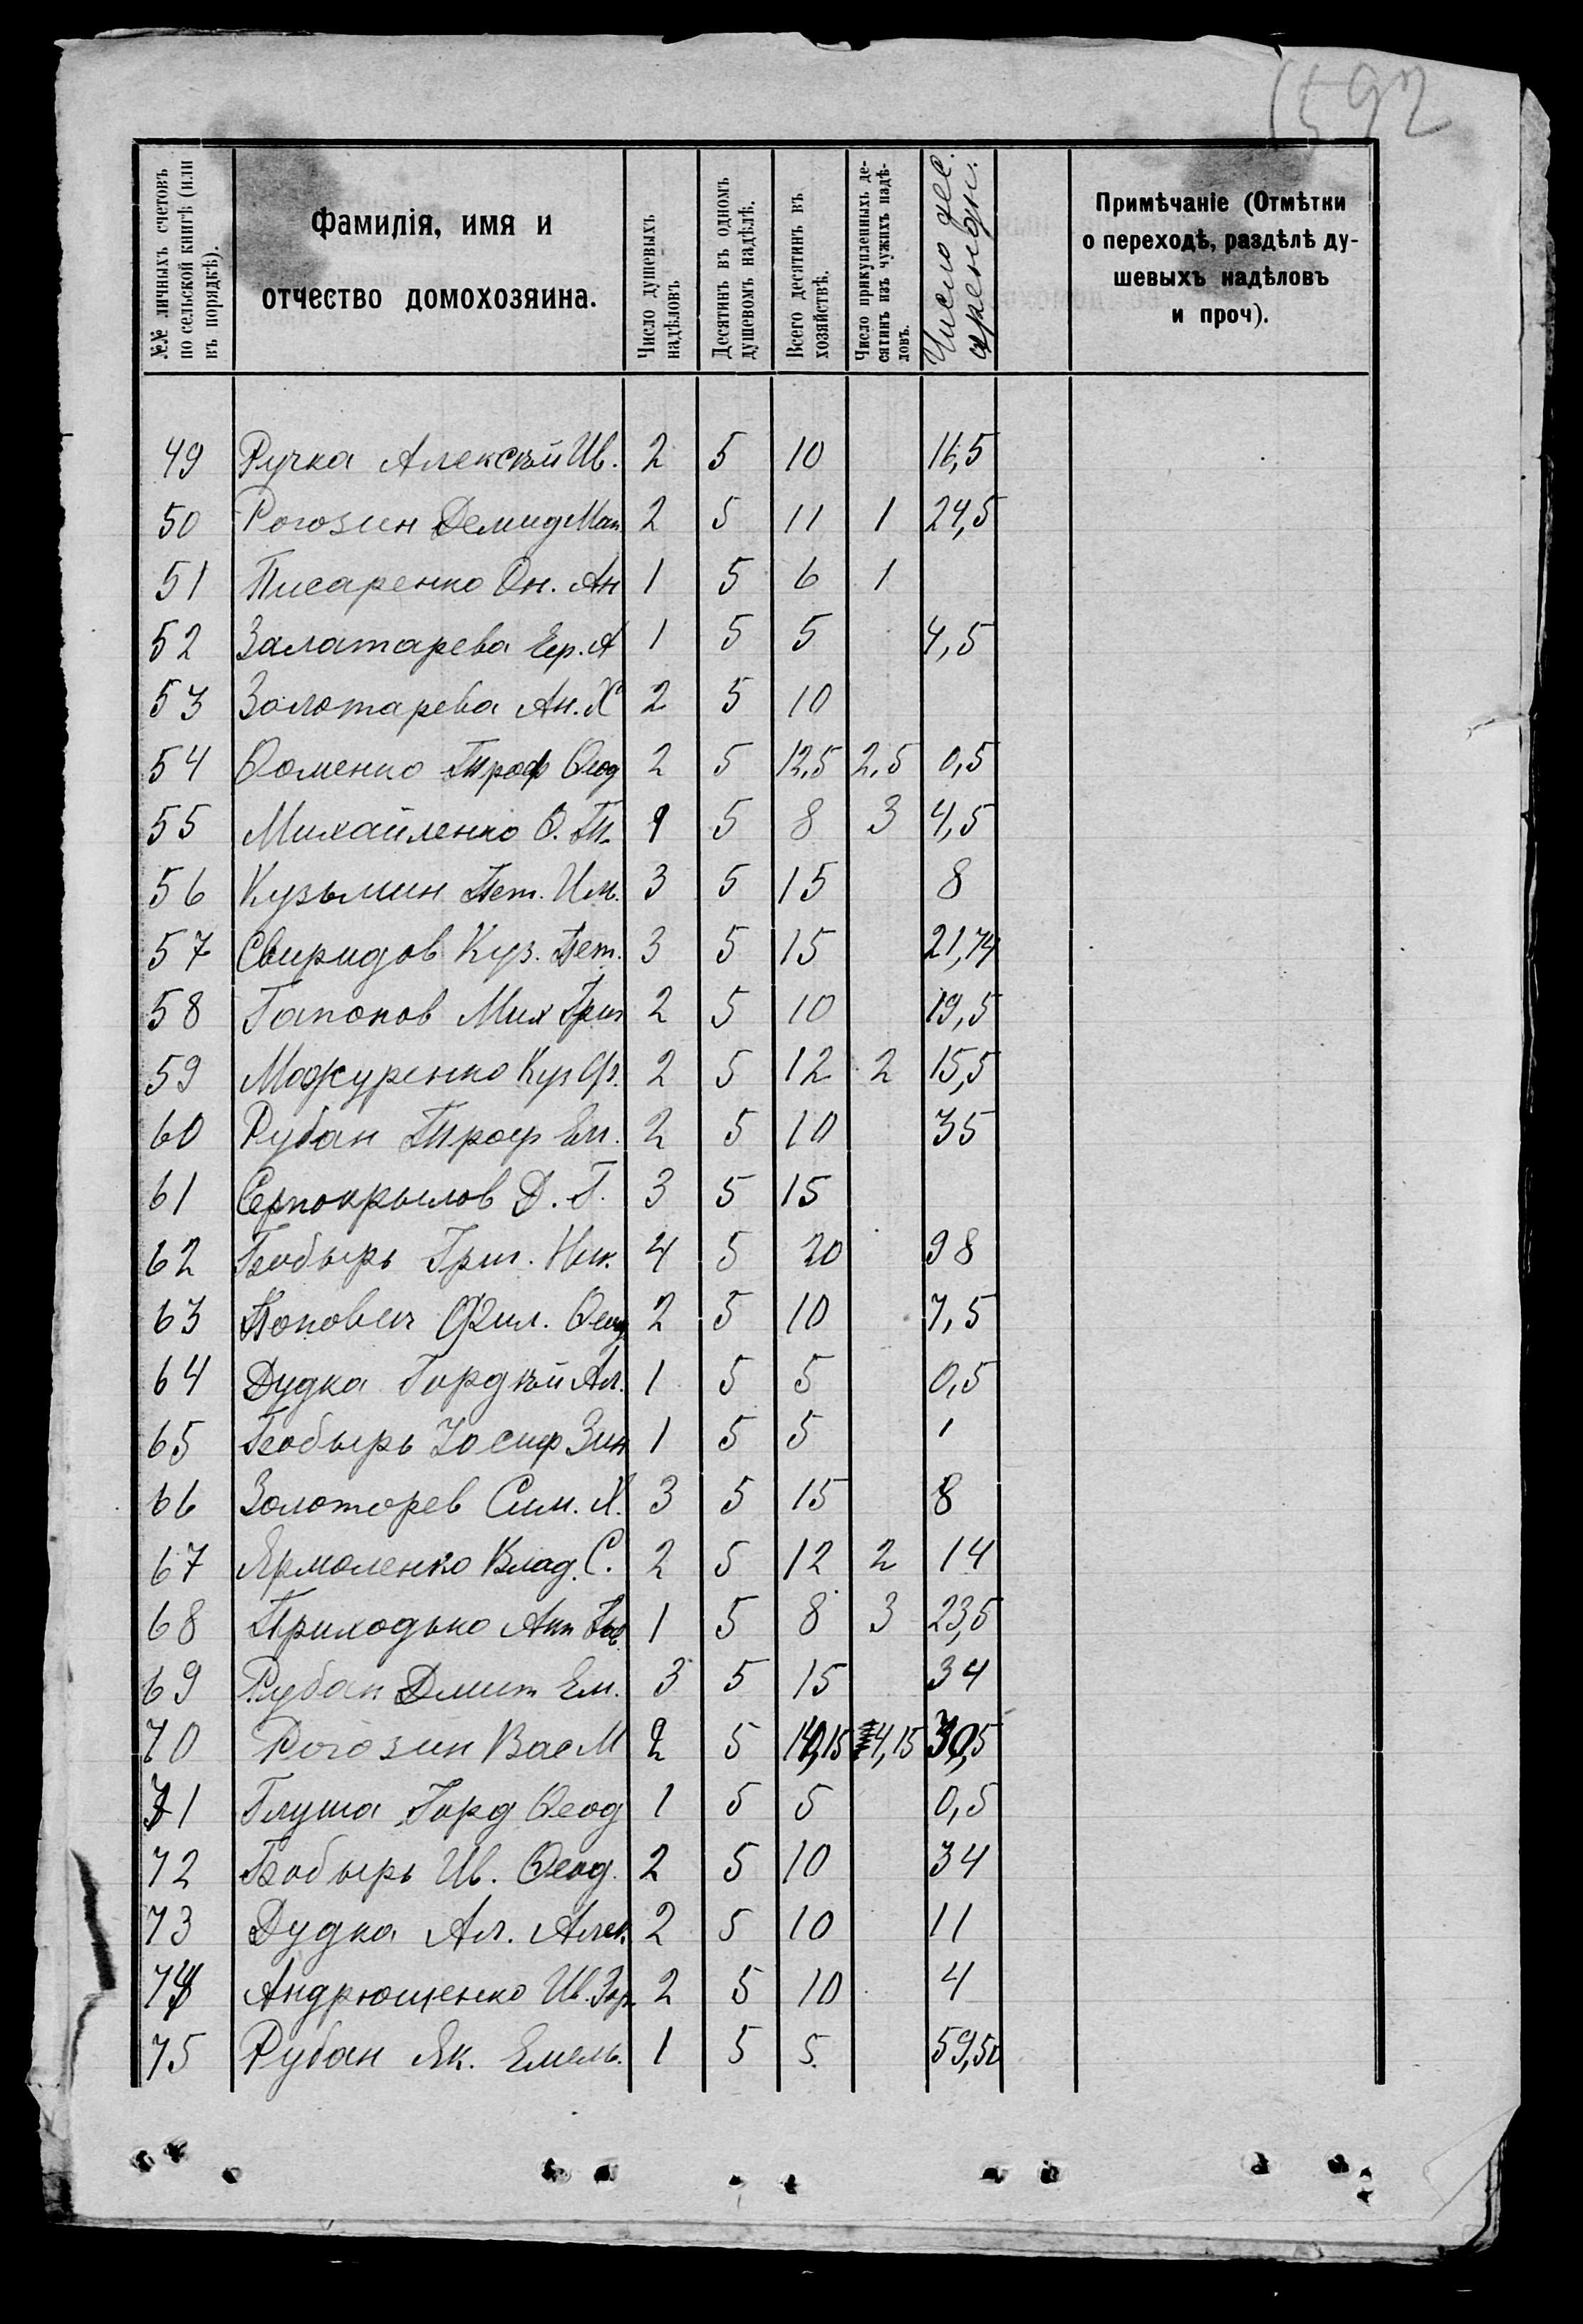 592
№№ личныхъ счетовъ по сельской книгѣ (или въ порядкѣ).
Фамилія, имя и отчество домохозяина.
Число душевыхъ надѣловъ.
Десятинъ въ одномъ душевомъ надѣлѣ.
Всего десятинъ въ хозяйствѣ.
Число прикупленныхъ десятинъ изъ чужихъ надѣловъ.
Число дес. арендн.
Примѣчаніе (Отмѣтки о переходѣ, раздѣлѣ душевыхъ надѣловъ и проч).
49 Ручка Алексѣй Ив. 2 5 10 16,5
50 Рогозин Демид Мак 2 5 11 1 24,5
51 Писаренко Он. Ан 1 5 6 1
52 Залатарева Ер. А 1 5 5 4,5
53 Золотарева Ан. Х 2 5 10
54 Ѳоменко Троф Ѳеод 2 5 12,5 2,5 0,5
55 Михайленко Ѳ. 1 5 8 3 4,5
56 Кузьмин Пет. Им. 3 5 15 8
57 Свиридов Куз. Пет. 3 5 15 21,74
58 Гапонов Мих Григ 2 5 10 19,5
59 Можуренко Куз 2 5 12 2 15,5
60 Рубан Проф Ем. 2 5 10 35
61 Серпокрылов Д. Г. 3 5 15
62 Бобырь Григ. Ник. 4 5 20 98
63 Попович Фил. Ѳеод 2 5 10 7,5
64 Дудка Гордѣй Ал. 1 5 5 0,5
65 Бобырь Іосиф Зин 1 5 5 1
66 Золоторев Сим. Х. 3 5 15 8
67 Ярмоленко Влад. С. 2 5 12 2 14
68 Приходько Ант 1 5 8 3 23,5
69 Рубан Дмит Ем. 3 5 15 34
70 Рогозин Вас М 2 5 14,15 4,15 30,5
71 Глуша Горд Ѳеод 1 5 5 0,5
72 Бобырь Ив. Ѳеод. 2 5 10 34
73 Дудка Ал. Алек. 2 5 10 11
74 Андрющенко Ив. 2 5 10 4
75 Рубан Як. Емель. 1 5 5. 59,50